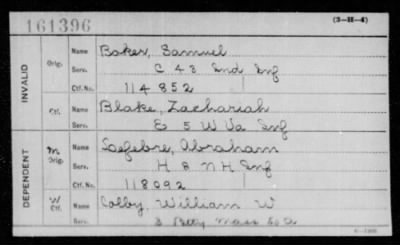 161396
(3-H-4)
INVALID
Orig.
Name Baker, Samuel
Serv. C 48 Ind Inf
Ctf. No. 114 852
Ctf.
Name Blake, Zachariah
Serv. E 5 W Va Inf
DEPENDENT
M
Orig.
Name Lefebre, Abraham
Serv. H 8 N H Inf
Ctf. No. 118092
W
Ctf.
Name Colby, William W
Serv. 3 Batty Mass